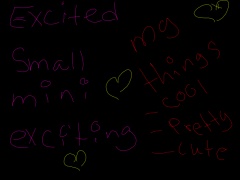 Excited
Small
mini
exciting
my
things
- cool
- Pretty
- Cute